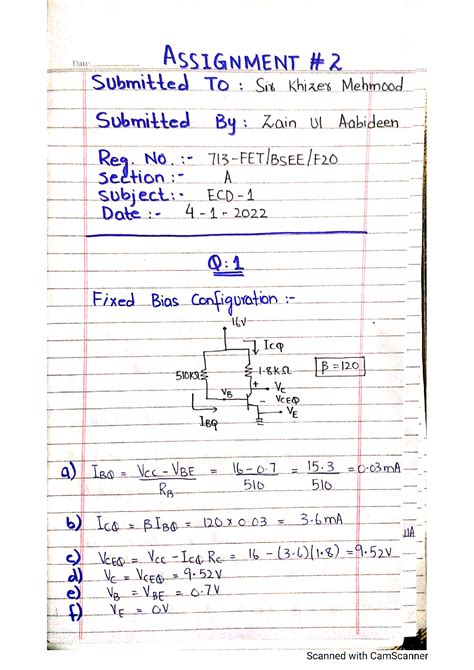 Date:
ASSIGNMENT #2
Submitted To : Sir Khizer Mehmood
Submitted By : Zain Ul Aabideen
Reg. No. :- 713-FET/BSEE/F20
Section :- A
Subject:- ECD-1
Date :- 4-1-2022
Q:1
Fixed Bias Configuration :-
16V
ICQ
510KΩ
1.8KΩ
β=120
+
VC
VB
VCEQ
-
VE
IBQ
a) IBQ = VCC - VBE / RB = 16-0.7 / 510 = 15.3 / 510 = 0.03mA
b) ICQ = βIBQ = 120 x 0.03 = 3.6mA
c) VCEQ = VCC - ICQ RC = 16 - (3.6)(1.8) = 9.52V
d) VC = VCEQ = 9.52V
e) VB = VBE = 0.7V
f) VE = 0V
Scanned with CamScanner